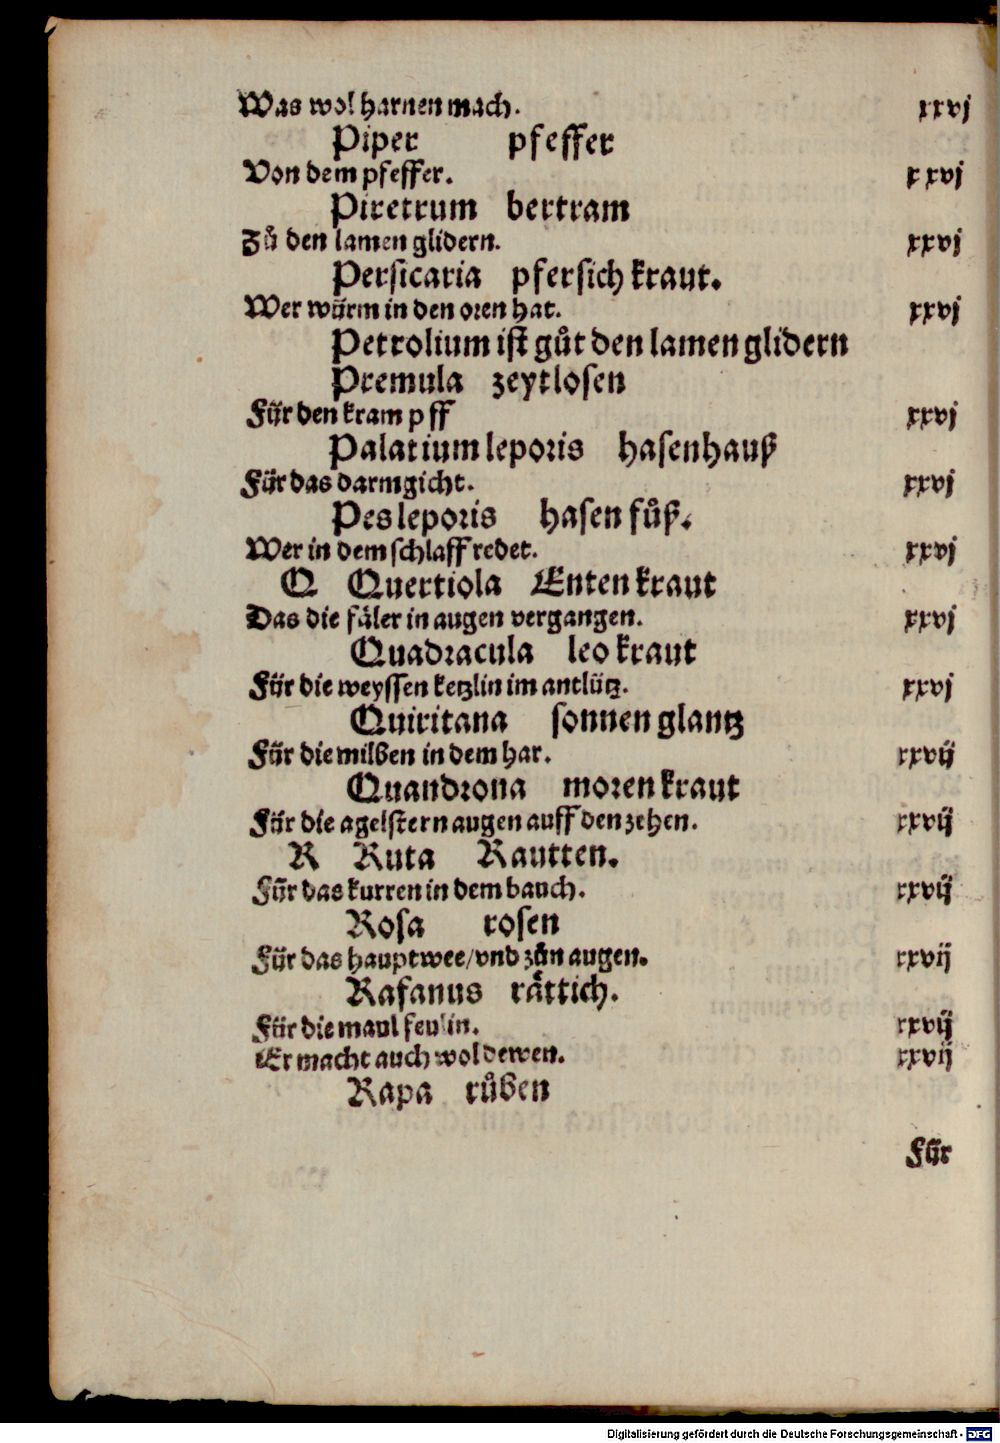 Was wol harnen mach. xxvj
Piper pfeffer
Von dem pfeffer. xxvj
Piretrum bertram
Zů den lamen glidern. xxvj
Persicaria pfersich kraut.
Wer würm in den oren hat. xxvj
Petrolium ist gůt den lamen glidern
Premula zeytlosen
Für den krampff xxvj
Palatium leporis hasenhauß
Für das darmgicht. xxvj
Pes leporis hasen fůß.
Wer in dem schlaff redet. xxvj
Q Quertiola Enten kraut
Das die fäler in augen vergangen. xxvj
Quadracula leo kraut
Für die weyssen ketzlin im antlütz. xxvj
Quiritana sonnen glantz
Für die milben in dem har. xxvij
Quandrona moren kraut
Für die agelstern augen auff den zehen. xxvij
R Ruta Rautten.
Für das kurren in dem bauch. xxvij
Rosa rosen
Für das hauptwee/vnd zůn augen. xxvij
Rafanus rättich.
Für die maul feulin. xxvij
Er macht auch wol dewen. xxvij
Rapa růben
Für
Digitalisierung gefördert durch die Deutsche Forschungsgemeinschaft - DFG